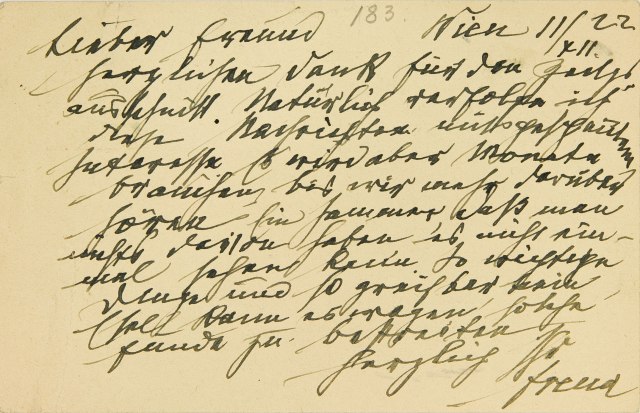 183.
Lieber Freund Wien 11/XII 22
Herzlichen Dank für den Zeitgs
ausschnitt. Natürlich verfolge ich
diese Nachrichten mit gespanntem
Interesse. Es wird aber Monate
brauchen bis wir mehr darüber
hören. Ein Jammer, daß man
nichts davon haben, es nicht ein-
mal sehen kann. So wichtige
Dinge und so greifbar kein
Esel kann es wagen, solche
Funde zu bestreiten
Herzlich Ihr
Freud